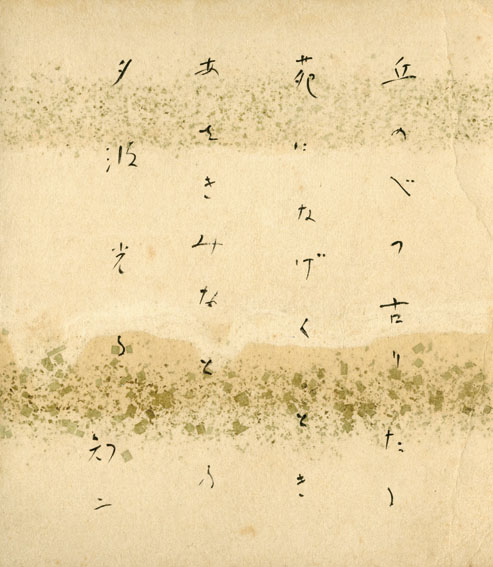 丘のべの古りたる
苑になげくとき
あをきみなと
夕波光る 知二